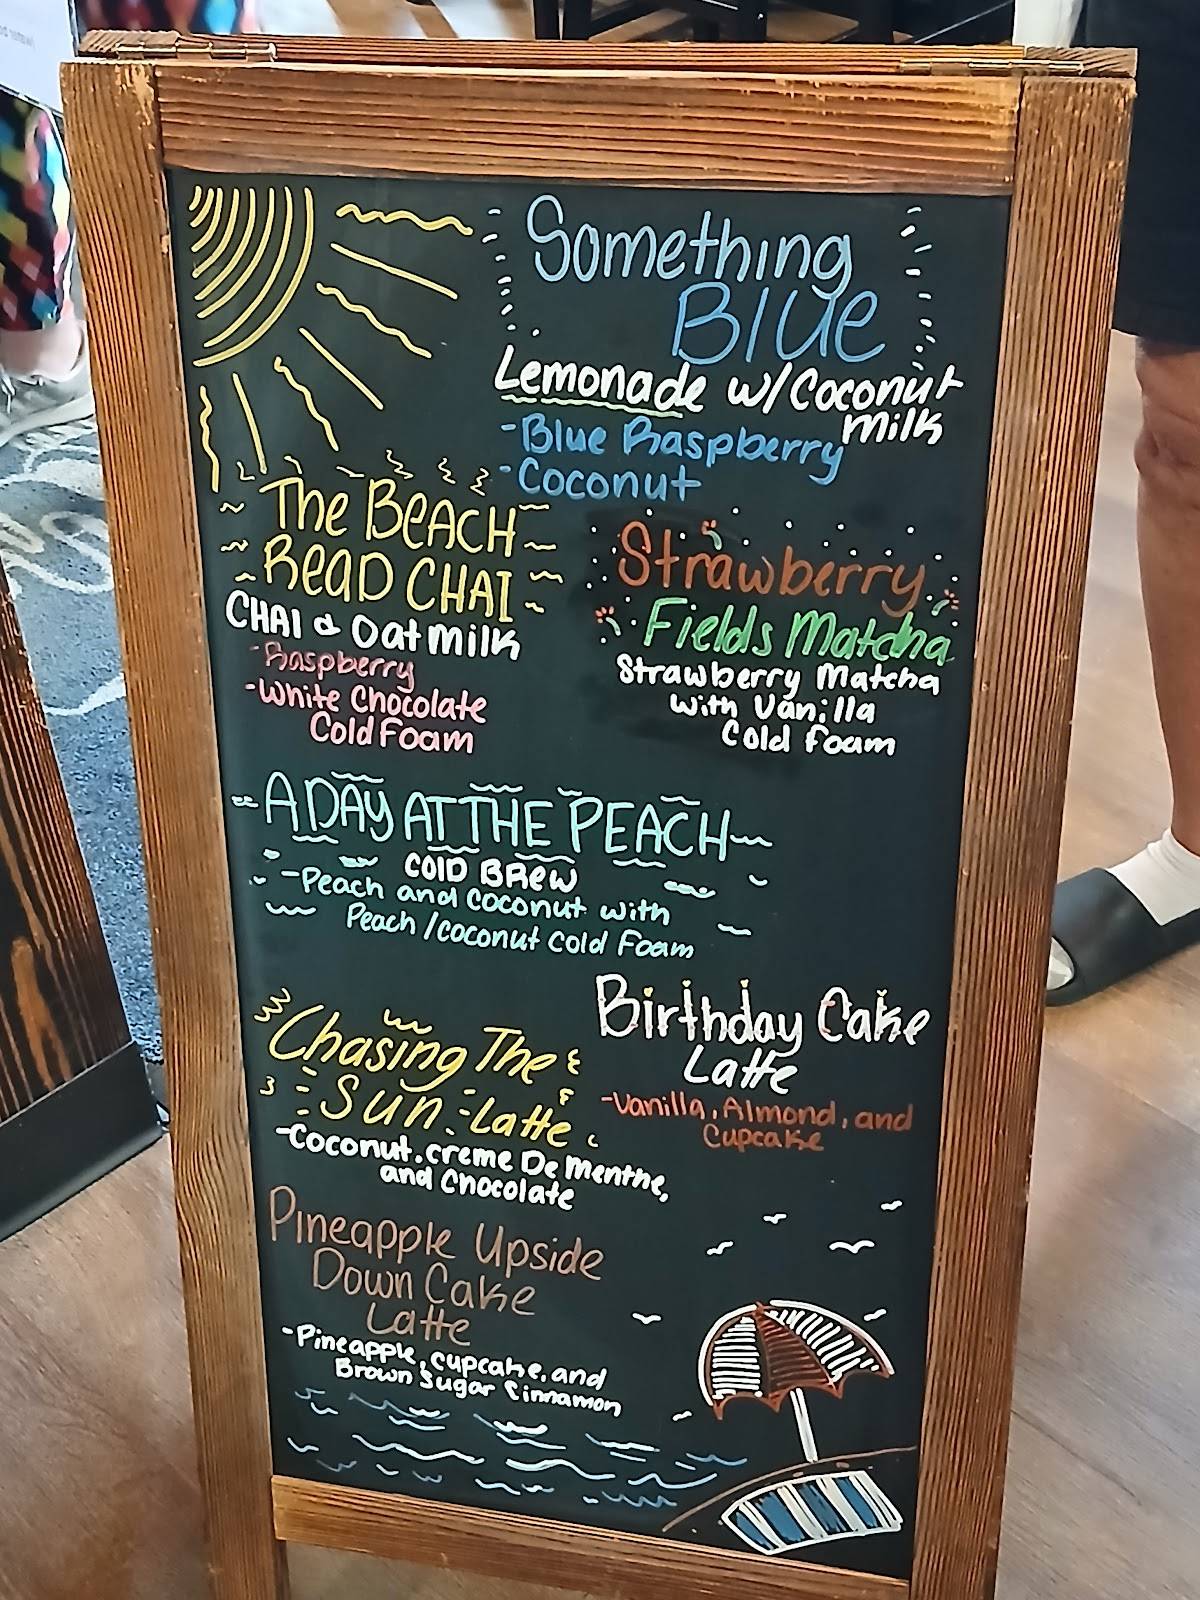 Something
Blue
Lemonade w/Coconut
Milk
-Blue Raspberry
-Coconut
The BEACH
ReaD CHAI
CHAI & Oat milk
-Raspberry
-White Chocolate
Cold Foam
Strawberry
Fields Matcha
Strawberry Matcha
with Vanilla
Cold foam
A DAY AT THE PEACH
COlD BRew
-Peach and coconut with
Peach/coconut Cold Foam
Chasing The
Sun Latte
-Coconut, creme De Menthe,
and Chocolate
Birthday Cake
Latte
-Vanilla, Almond, and
Cupcake
Pineapple Upside
Down Cake
Latte
-Pineapple, cupcake, and
Brown Sugar Cinnamon